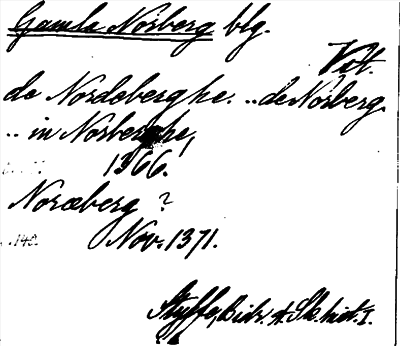 Gamla Norberg blg.
Vst.
de Nordeberghe. ..de Norberg.
.. in Norberghe,
1366.
Noræberg ?
..140. Nov. 1371.
Styffe, Bidr. t. Sk. hist. I.